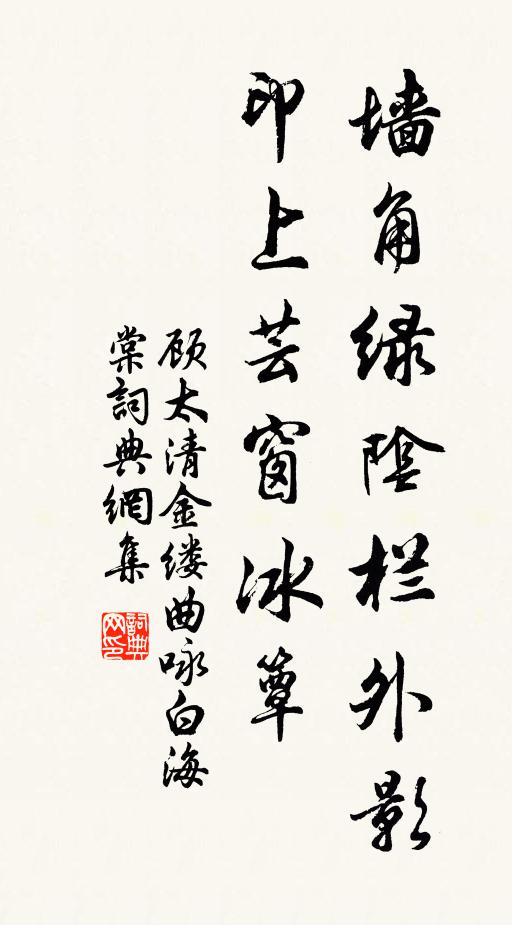 墙角绿陰栏外影
印上芸窗冰簟
顾太清金缕曲咏白海
棠詞典網集
詞典网印